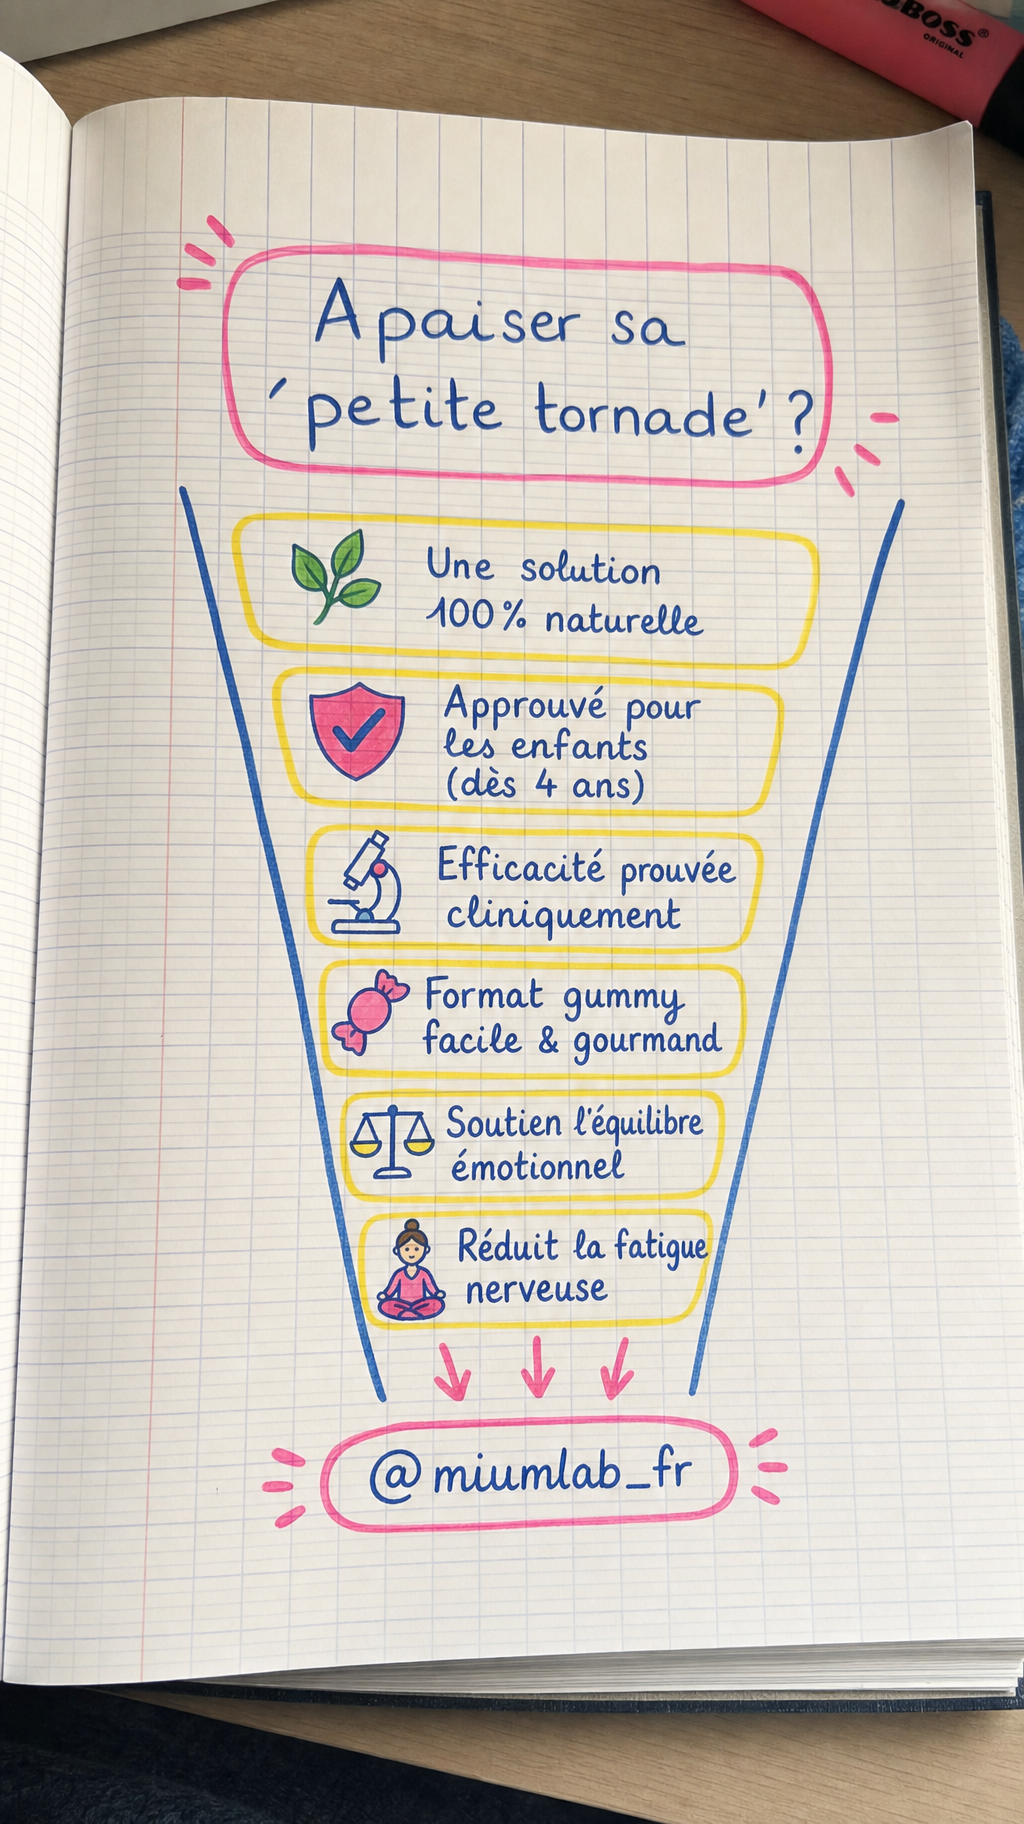 BOSS®
ORIGINAL
Apaiser sa
'petite tornade'?
Une solution
100% naturelle
Approuvé pour
les enfants
(dès 4 ans)
Efficacité prouvée
cliniquement
Format gummy
facile & gourmand
Soutien l'équilibre
émotionnel
Réduit la fatigue
nerveuse
@miumlab_fr